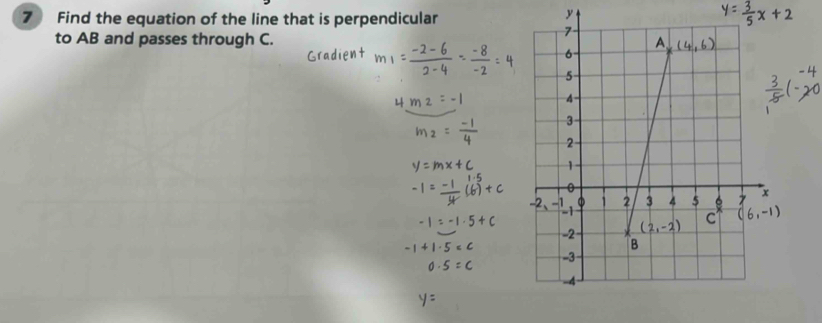 7 Find the equation of the line that is perpendicular
to AB and passes through C.
Gradient m1 = -2-6/2-4 = -8/-2 = 4
4 m2 = -1
m2 = -1/4
y = mx + c
-1 = -1/4 (6) + c
1.5
-1 = -1.5 + c
-1 + 1.5 = c
0.5 = c
y =
y = 3/5 x + 2
3/5 (-20
-4
1
y
7
A (4,6)
6
5
4
3
2
1
0
-2 -1 0 1 2 3 4 5 6 7 x
-1
C (6,-1)
(2,-2)
-2
B
-3
-4